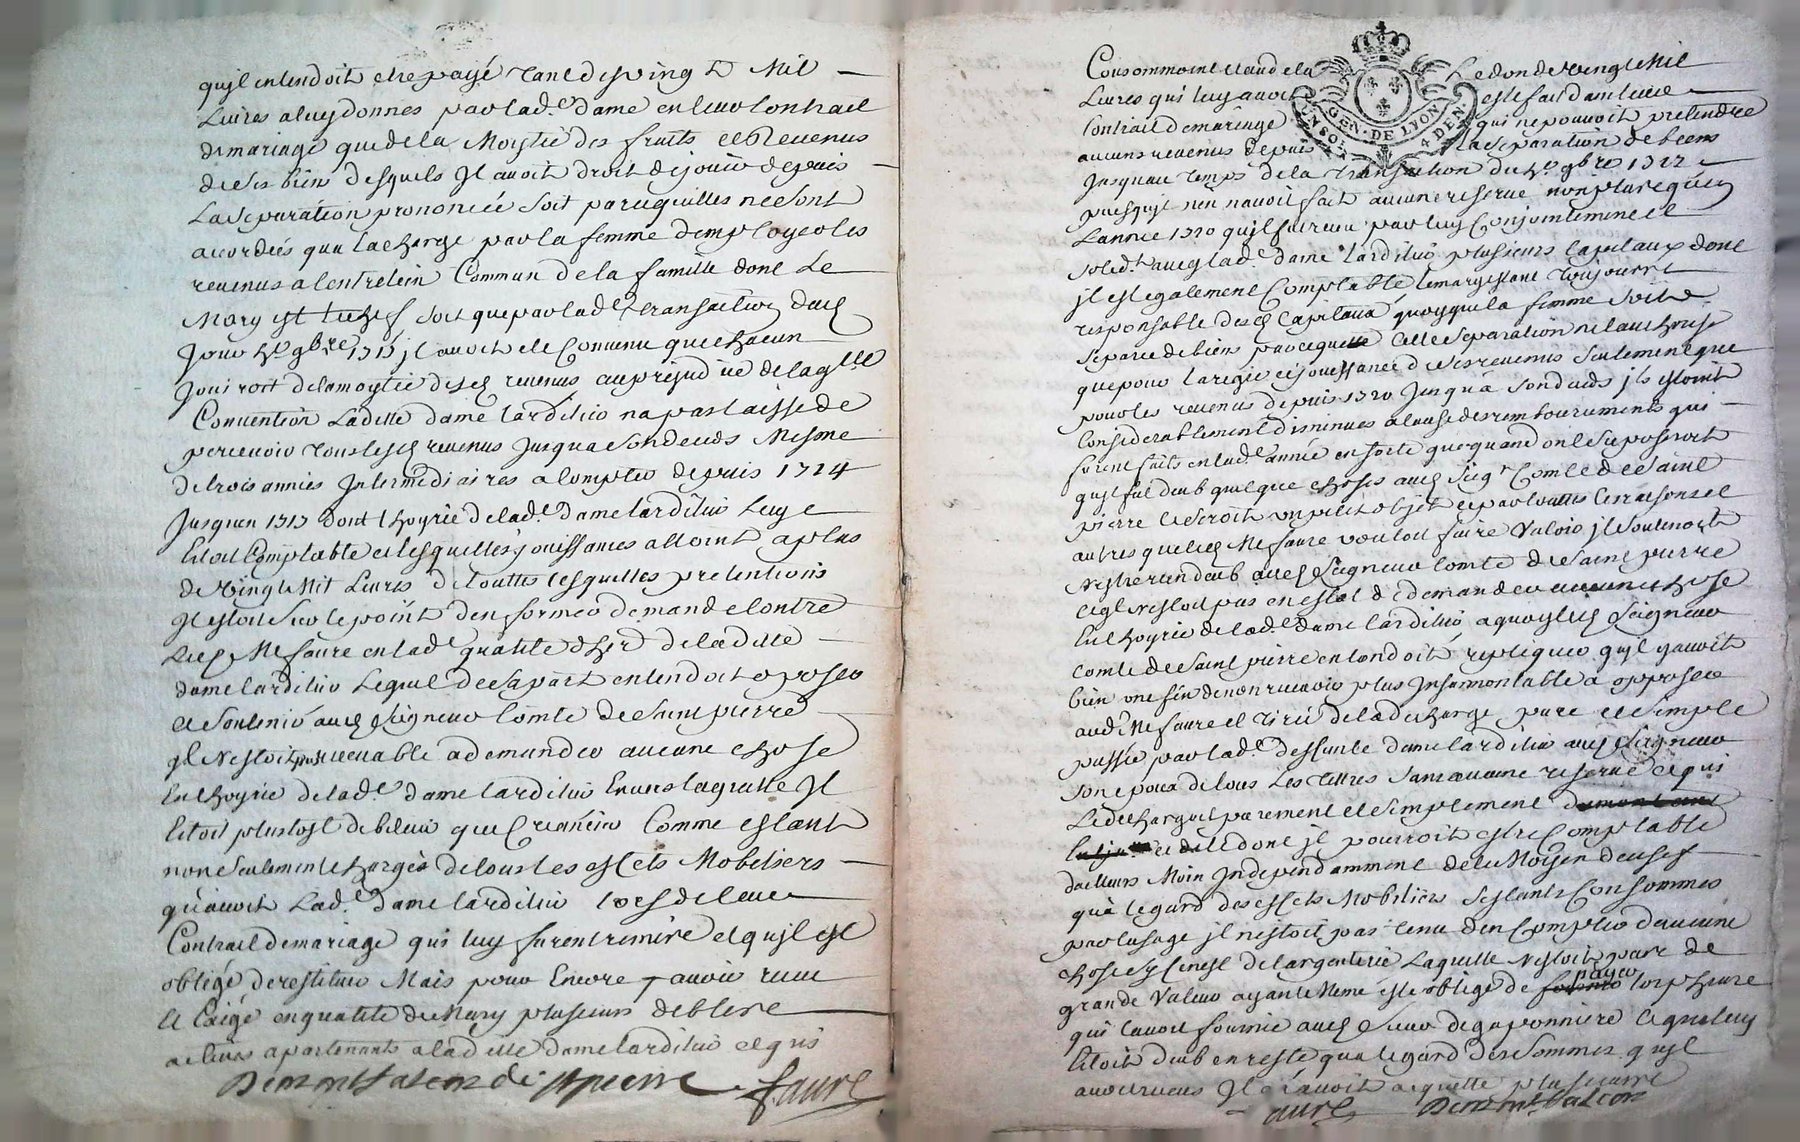 quil entendoit etre payé tant des vingt Mil
Livres a luy donnés par lad.e dame en leur Contract
de mariage que de la Moytié des fruits et Revenus
de ses bien desquels Il avoit droit de jouir depuis
La Separation prononcée soit parcequelles ne sont
acordées qua la charge par la femme demployer les
revenus a lentretein Commun de la famille dont Le
Mary est le chef soit que par lad.e transaction dud
jour 4e 9bre 1713 jl avoit ete Convenu que chacun
jouiroit de la moytié desd revenus au prejudice de laqlle
Convention Laditte dame Larditier na pas laissé de
percevoir tous lesd revenus jusqua son deceds Mesme
de trois années Intermediaires a Compter depuis 1714
jusquen 1717 dont lhoyrie de lad.e dame Larditier Luy
Etoit Comptable et lesquelles jouissances alloint a plus
de Vingt Mil Livres de touttes lesquelles pretentions
Il estoit sur le point den former demande Contre
Led Me faure en lad.e qualité dher de laditte
dame Larditier Lequel de sa part entendoit oposer
et soutenir aud Seigneur Comte de Saint pierre
ql Nestoit pas recevable a demander aucune chose
En lhoyrie de lad.e dame Larditier Envers laquelle Il
Etoit plustost debiteur que Creancier Comme estant
non seulement chargé de tous les effets Mobeliers
quavoit Lad.e dame Larditier lors de leur
Contract de mariage qui luy furent remire et quil est
obligé de restituer Mais pour Encore y avoir receu
et Exigé en qualité de Mary plusieurs debtes
actives apartenants a laditte dame Larditier et quil
de St pierre faure
Consommoint et au dela Le don de Vingt Mil
Livres qui luy avoit esté fait dans leur
Contract de mariage qui ne pouvoit pretendre
aucuns revenus depuis La separation de biens
jusquau temps de la transaction du 4e 9bre 1722
puisquil nen navoit fait aucune reserve non plus que
Lannée 1720 quil fut receu par luy Conjointement et
solid.t avec lad.e dame Larditier plusieurs Capitaux dont
jl est egalement Comptable le mary estant toujours
responsable desd Capitaux quoyque la femme soit
separée de biens parceque cette separation nelauthorise
que pour la regie et jouissance de ses revenus seulement que
pour les revenus depuis 1720 jusqua son deceds jls estoint
Considerablement diminués a cause des remboursements qui
furent faits en lad.e année en sorte que quand on le suposeroit
quil fut deub quelque choses aud Seigr Comte de Saint
pierre Ce seroit un petit objet et par touttes les raisons et
autres que led Me faure vouloit faire Valoir jl soutenoit
Nestre rien deub aud Seigneur Comte de Saint pierre
et ql Nestoit pas en estat de demander aucune chose
En lhoyrie de lad.e dame Larditier a quoy led Seigneur
Comte de Saint pierre entendoit repliquer quil y avoit
bien une fin de non recevoir plus Insurmontable a opposer
aud Me faure et tirée de la decharge pure et simple
passée par lad.e deffunte dame Larditier aud Seigneur
son epoux de tous Les tittres sans aucune reserve ce qui
Le dechargeoit purement et simplement
et dont jl pourroit estre Comptable
dailleurs Moin Independamment de ce Moyen decisif
qua legard des effets Mobiliers sestants Consommés
par lusage jl nestoit pas tenu den Compter daucune
chose Sy Cenest de largenterie Laquelle Nestoit pas de
grande Valeur ayant Meme esté obligé de payer lorphevre
qui lavoit fournie aud Sieur de gaponniere lequel luy
Etoit deub en reste qua legard des sommes quil
avoit receus Il en avoit acquitté plusieurs
faure